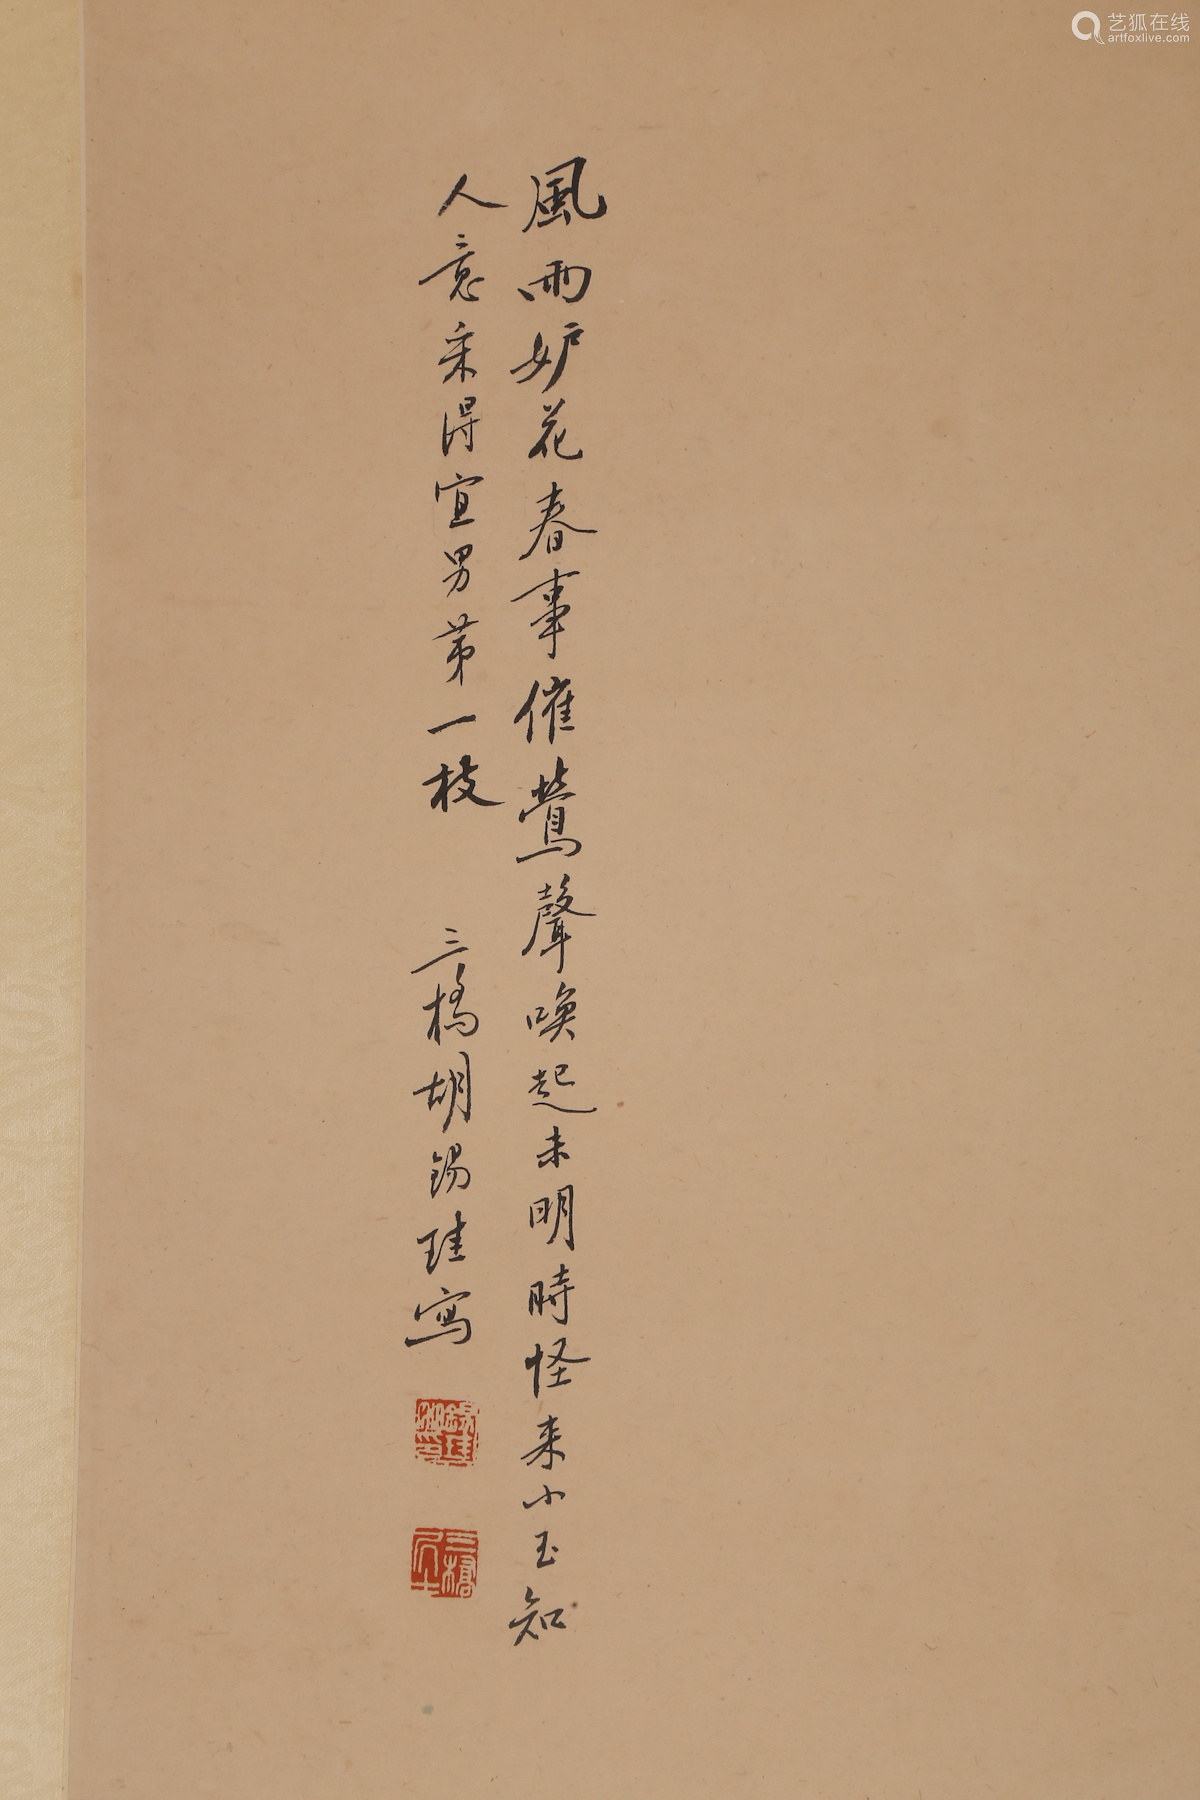 艺狐在线
artfoxlive.com
風雨妒花春事催鶯聲喚起未明時怪来小玉知
人意采得宜男苐一枝
三橋胡錫珪寫
錫珪
三橋